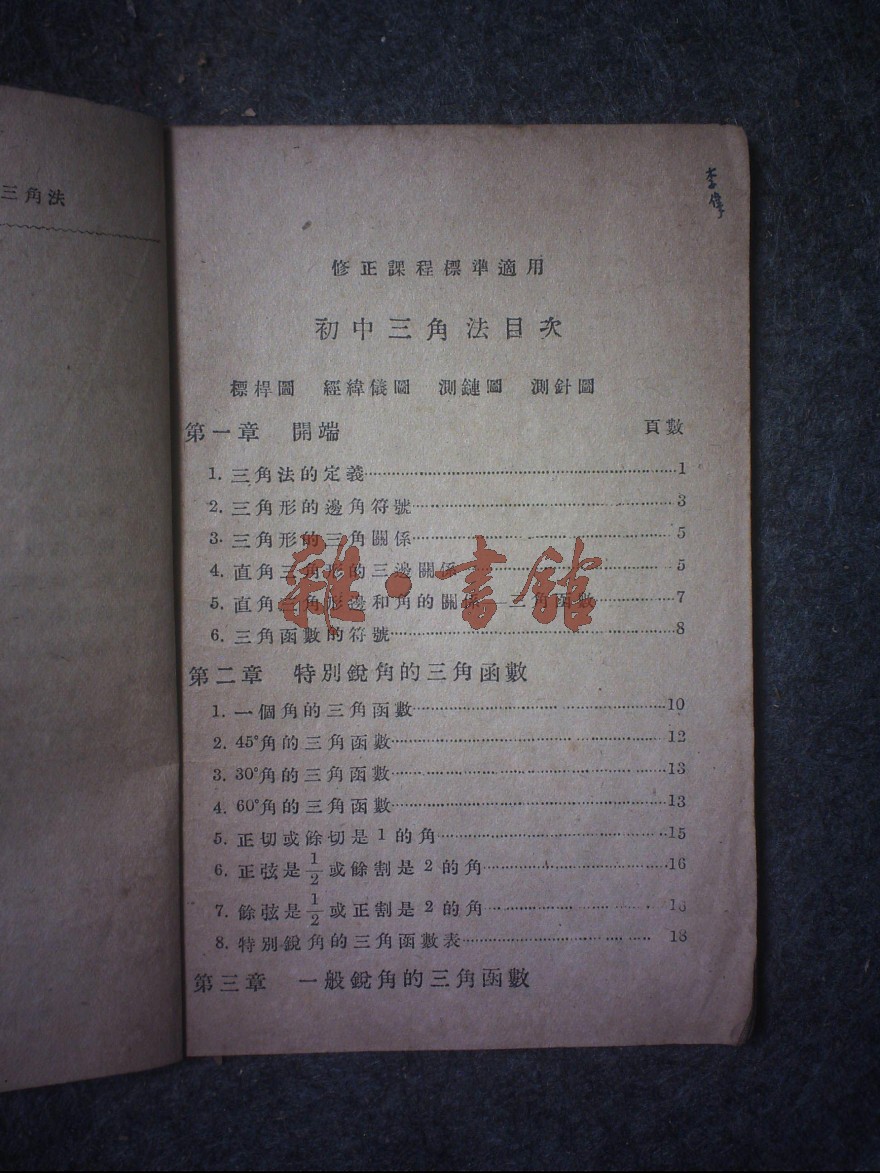 三角法
李偉
修正課程標準適用
初中三角法目次
標桿圖 經緯儀圖 測鏈圖 測針圖
第一章 開端 頁數
1. 三角法的定義 1
2. 三角形的邊角符號 3
3. 三角形的三角關係 5
4. 直角三角形的三邊關係 5
5. 直角三角形邊和角的關係 三角函數 7
6. 三角函數的符號 8
雜·書館
第二章 特別銳角的三角函數
1. 一個角的三角函數 10
2. 45°角的三角函數 12
3. 30°角的三角函數 13
4. 60°角的三角函數 13
5. 正切或餘切是1的角 15
6. 正弦是1/2或餘割是2的角 16
7. 餘弦是1/2或正割是2的角
8. 特別銳角的三角函數表 18
第三章 一般銳角的三角函數